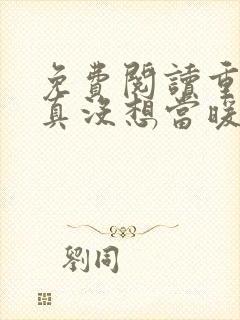 免費閱讀重
真沒想當暖
劉同